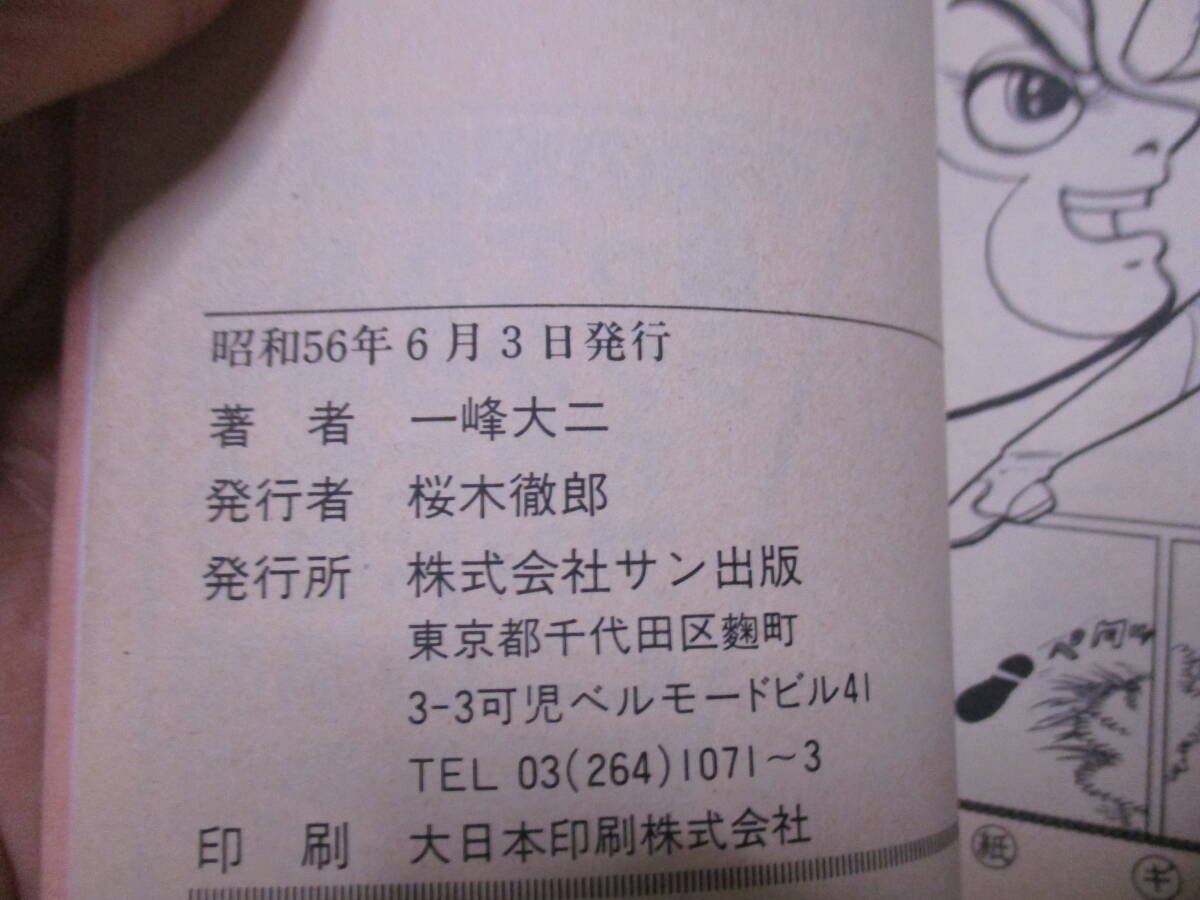 昭和56年6月3日発行
著者 一峰大二
発行者 桜木徹郎
発行所 株式会社サン出版
東京都千代田区麴町
3-3可児ベルモードビル41
TEL 03(264)1071~3
印刷 大日本印刷株式会社
紙
ギ